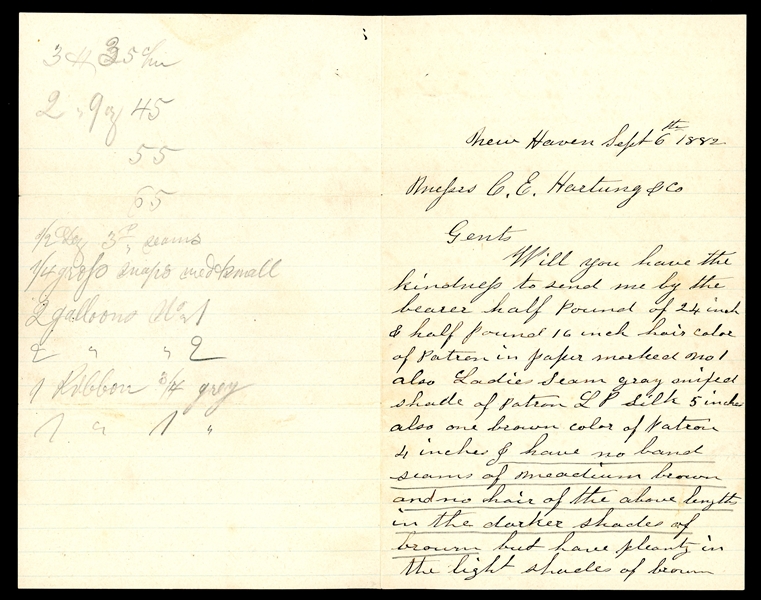 3 H 35 c/m
2 " 9 oz 45
55
65
1/2 Doz 3 P. seams
1/4 gross snaps med & small
2 galloons No 1
2 " " 2
1 Ribbon 3/4 grey
1 " 1 "
New Haven Sept 6th 1882
Messrs C. E. Hartung & Co
Gents
Will you have the
kindness to send me by the
bearer half Pound of 24 inch
& half Pound 16 inch hair color
of Patron in paper marked No 1
also Ladies Seam gray mixed
shade of Patron L P Silk 5 inches
also one brown color of Patron
4 inches & have no band
seams of meadium brown
and no hair of the above lengths
in the darker shades of
brown but have plenty in
the light shades of brown